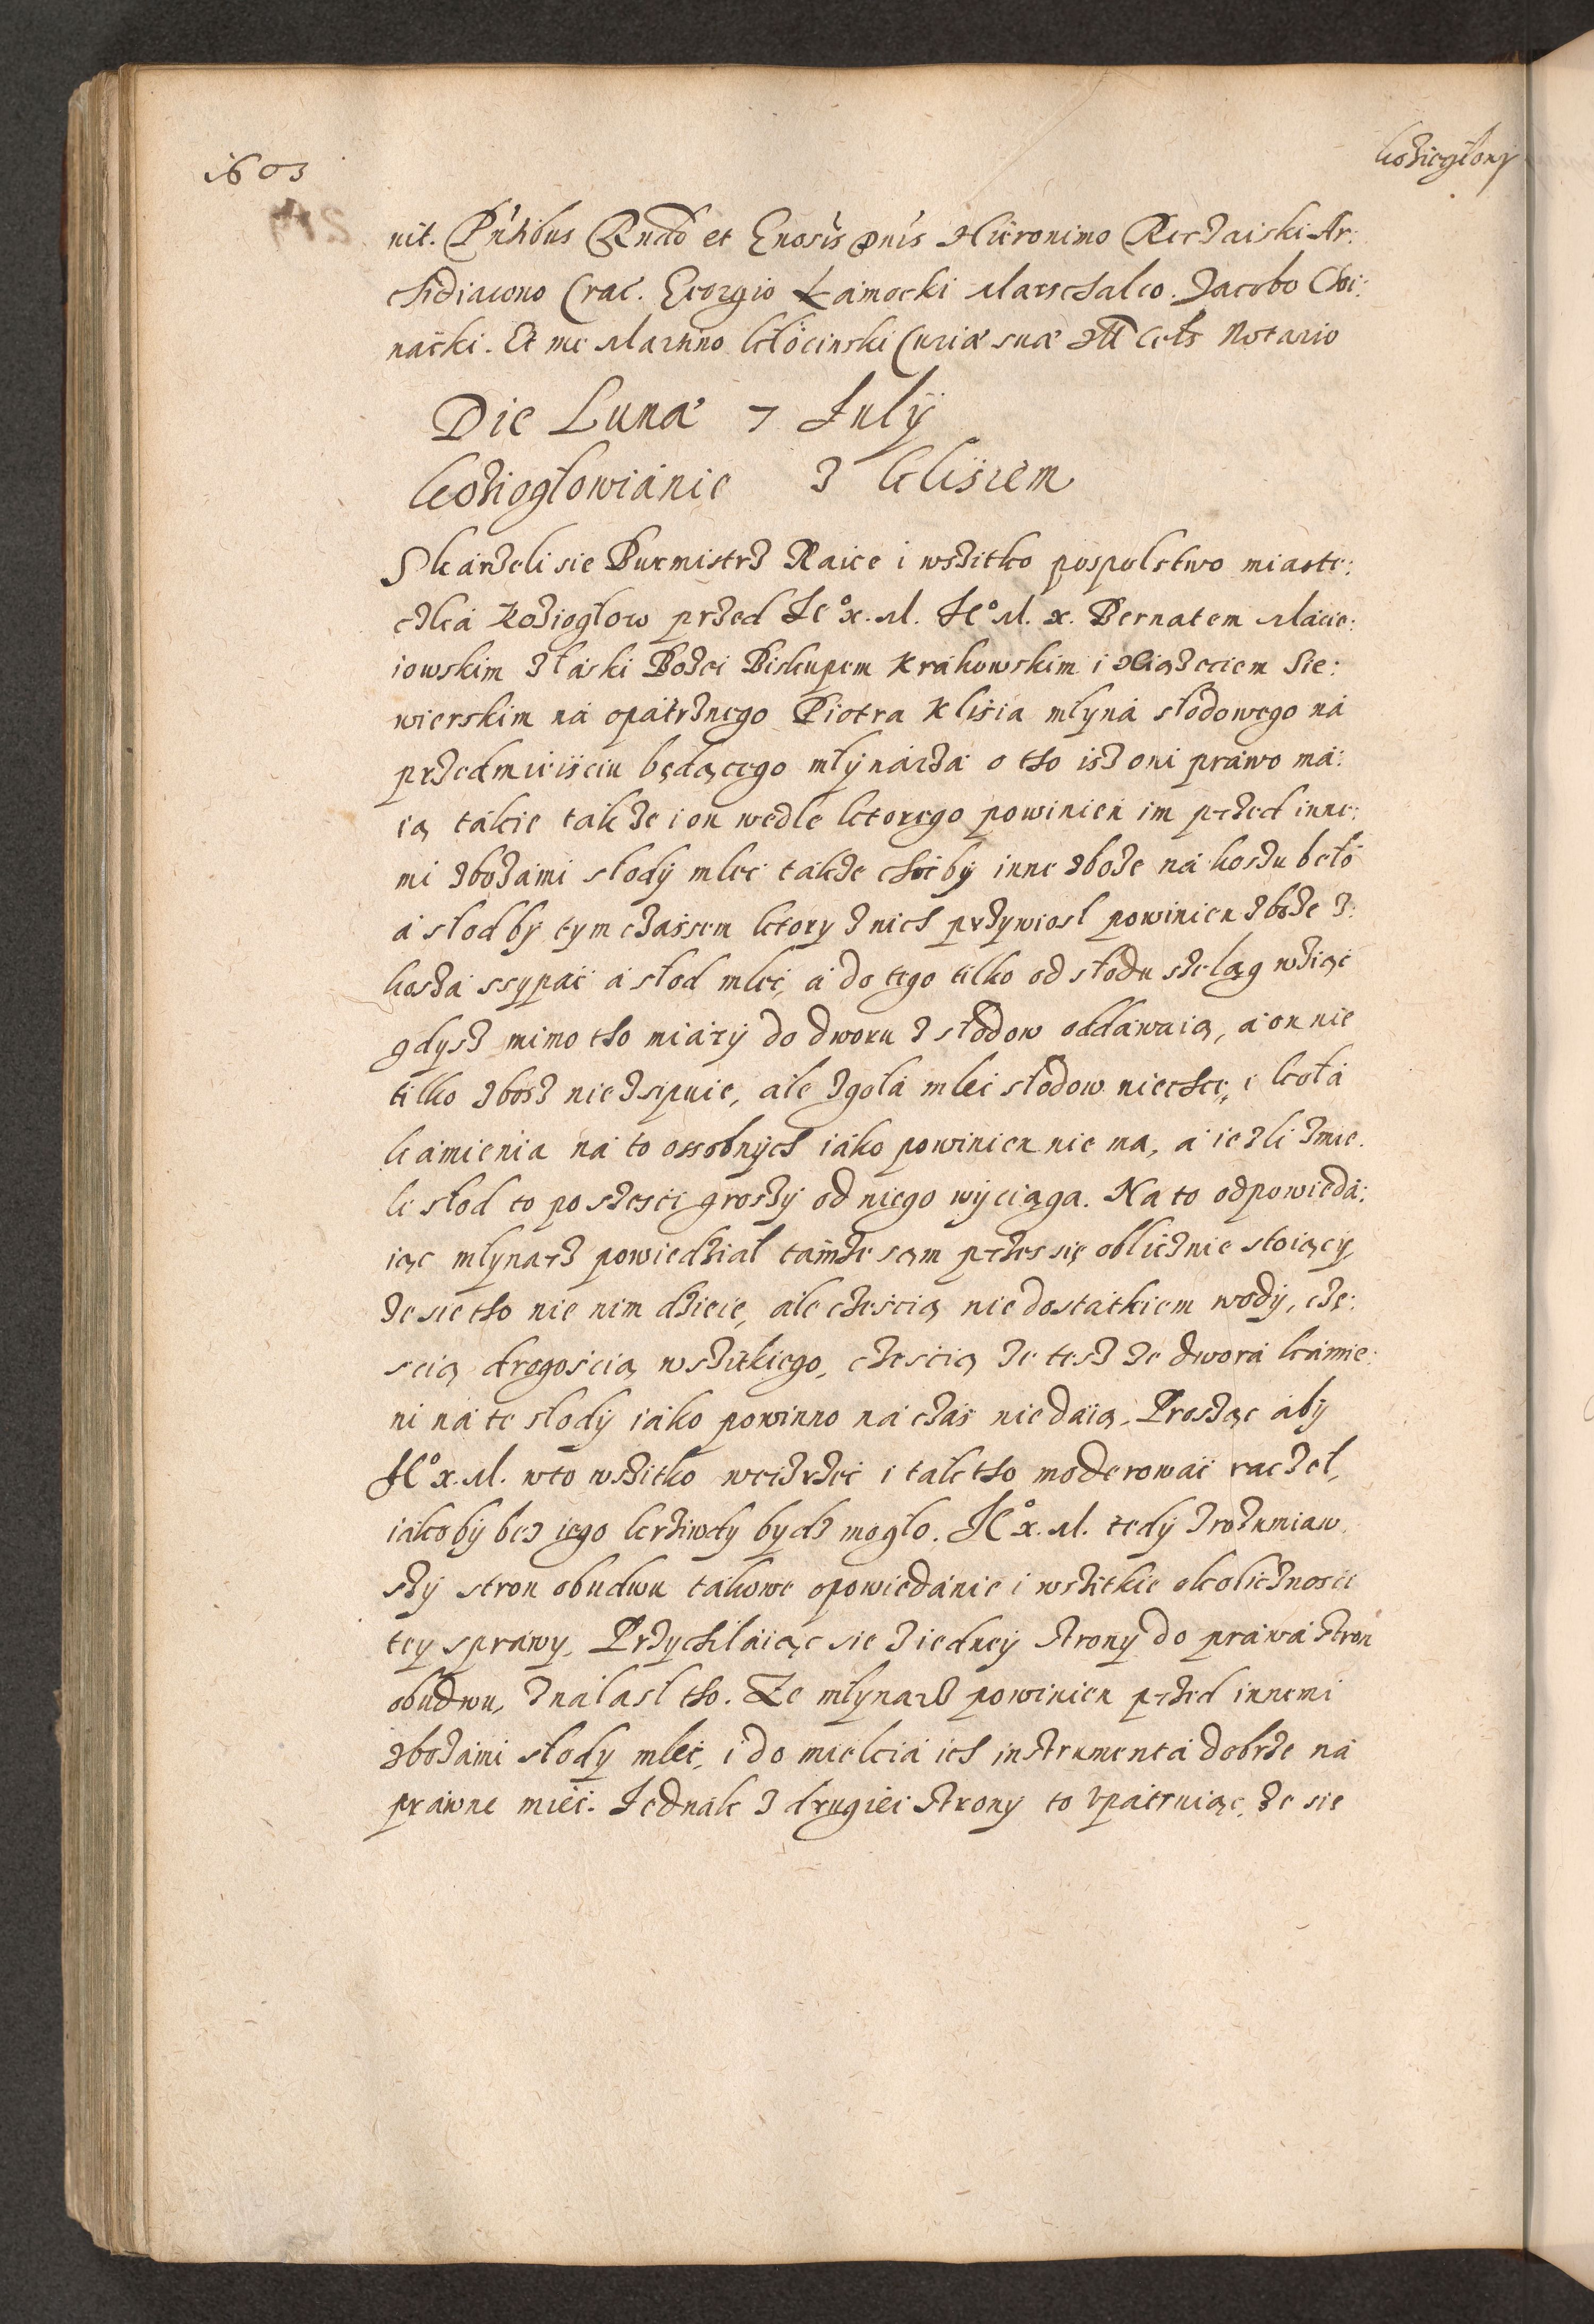 1603
Kozieglowy
nit. Pntibus Rndo et Gnosis Dnis Hieronimo Rerzaiski Ar:
chidiacono Crac. Georgio Łamocki Marschalco. Jacobo Choi:
nacki. Et me Martino Kłocinski Curiæ suæ Ill Cels Notario
Die Lunæ 7 Julÿ
Koziogłowianie z Klisiem
Skarzeli sie Burmistrz Raice i wszitko pospolstwo miaste:
czka Kozioglow przed Je° x. M. Je° M. x. Bernatem Macie:
iowskim z łaski Bozei Biskupem Krakowskim i Xiązęciem Sie:
wierskim na opatrznego Piotra Klisia młyna słodowego na
przedmieisciu będącego młynarza o tho isz oni prawo ma:
ią takie takze i on wedle ktorego powinien im przed inne:
mi zbozami słody mlec takze choc by inne zboze na koszu beło
a słod by tym czassem ktory z nich przywiosl powinien zboze z:
kosza ssypac a słod mlec, a do tego tilko od słodu szeląg wziąc
gdysz mimo tho miary do dworu z słodow oddawaią, a on nie
tilko zbosz nie zsipuie, ale zgoła mlec słodow niechce, i koła
kamienia na to ossobnych iako powinien nie ma, a iezli zmie
li słod to po szesci groszy od niego wyciąga. Na to odpowieda:
iąc mlynarz powiedział tamze sąm przes się oblicznie stoiący,
ze sie tho nie nim dzieie, ale czescią niedostatkiem wody, czę:
scią drogoscią wszitkiego, czescią ze tesz ze dwora kamie:
ni na te słody iako powinno na czas niedaią. Prosząc aby
Je° x. M. w to wszitko weizrzec i tak tho moderowac raczeł,
iakoby bez iego krziwdy bydz mogło. Je° x. M. tedy zrozumiaw
szy stron obudwu takowe opowiedanie i wszitkie okolicznosci
tey sprawy. Przychilaiąc sie z iedney strony do prawa stron
obudwu, znalasl tho. Ze mlynarz powinien przed innemi
zbozami słody mlec, i do mielcia ich instrumenta dobrze na
prawne miec. Jednak z drugiei strony to vpatruiąc, ze sie